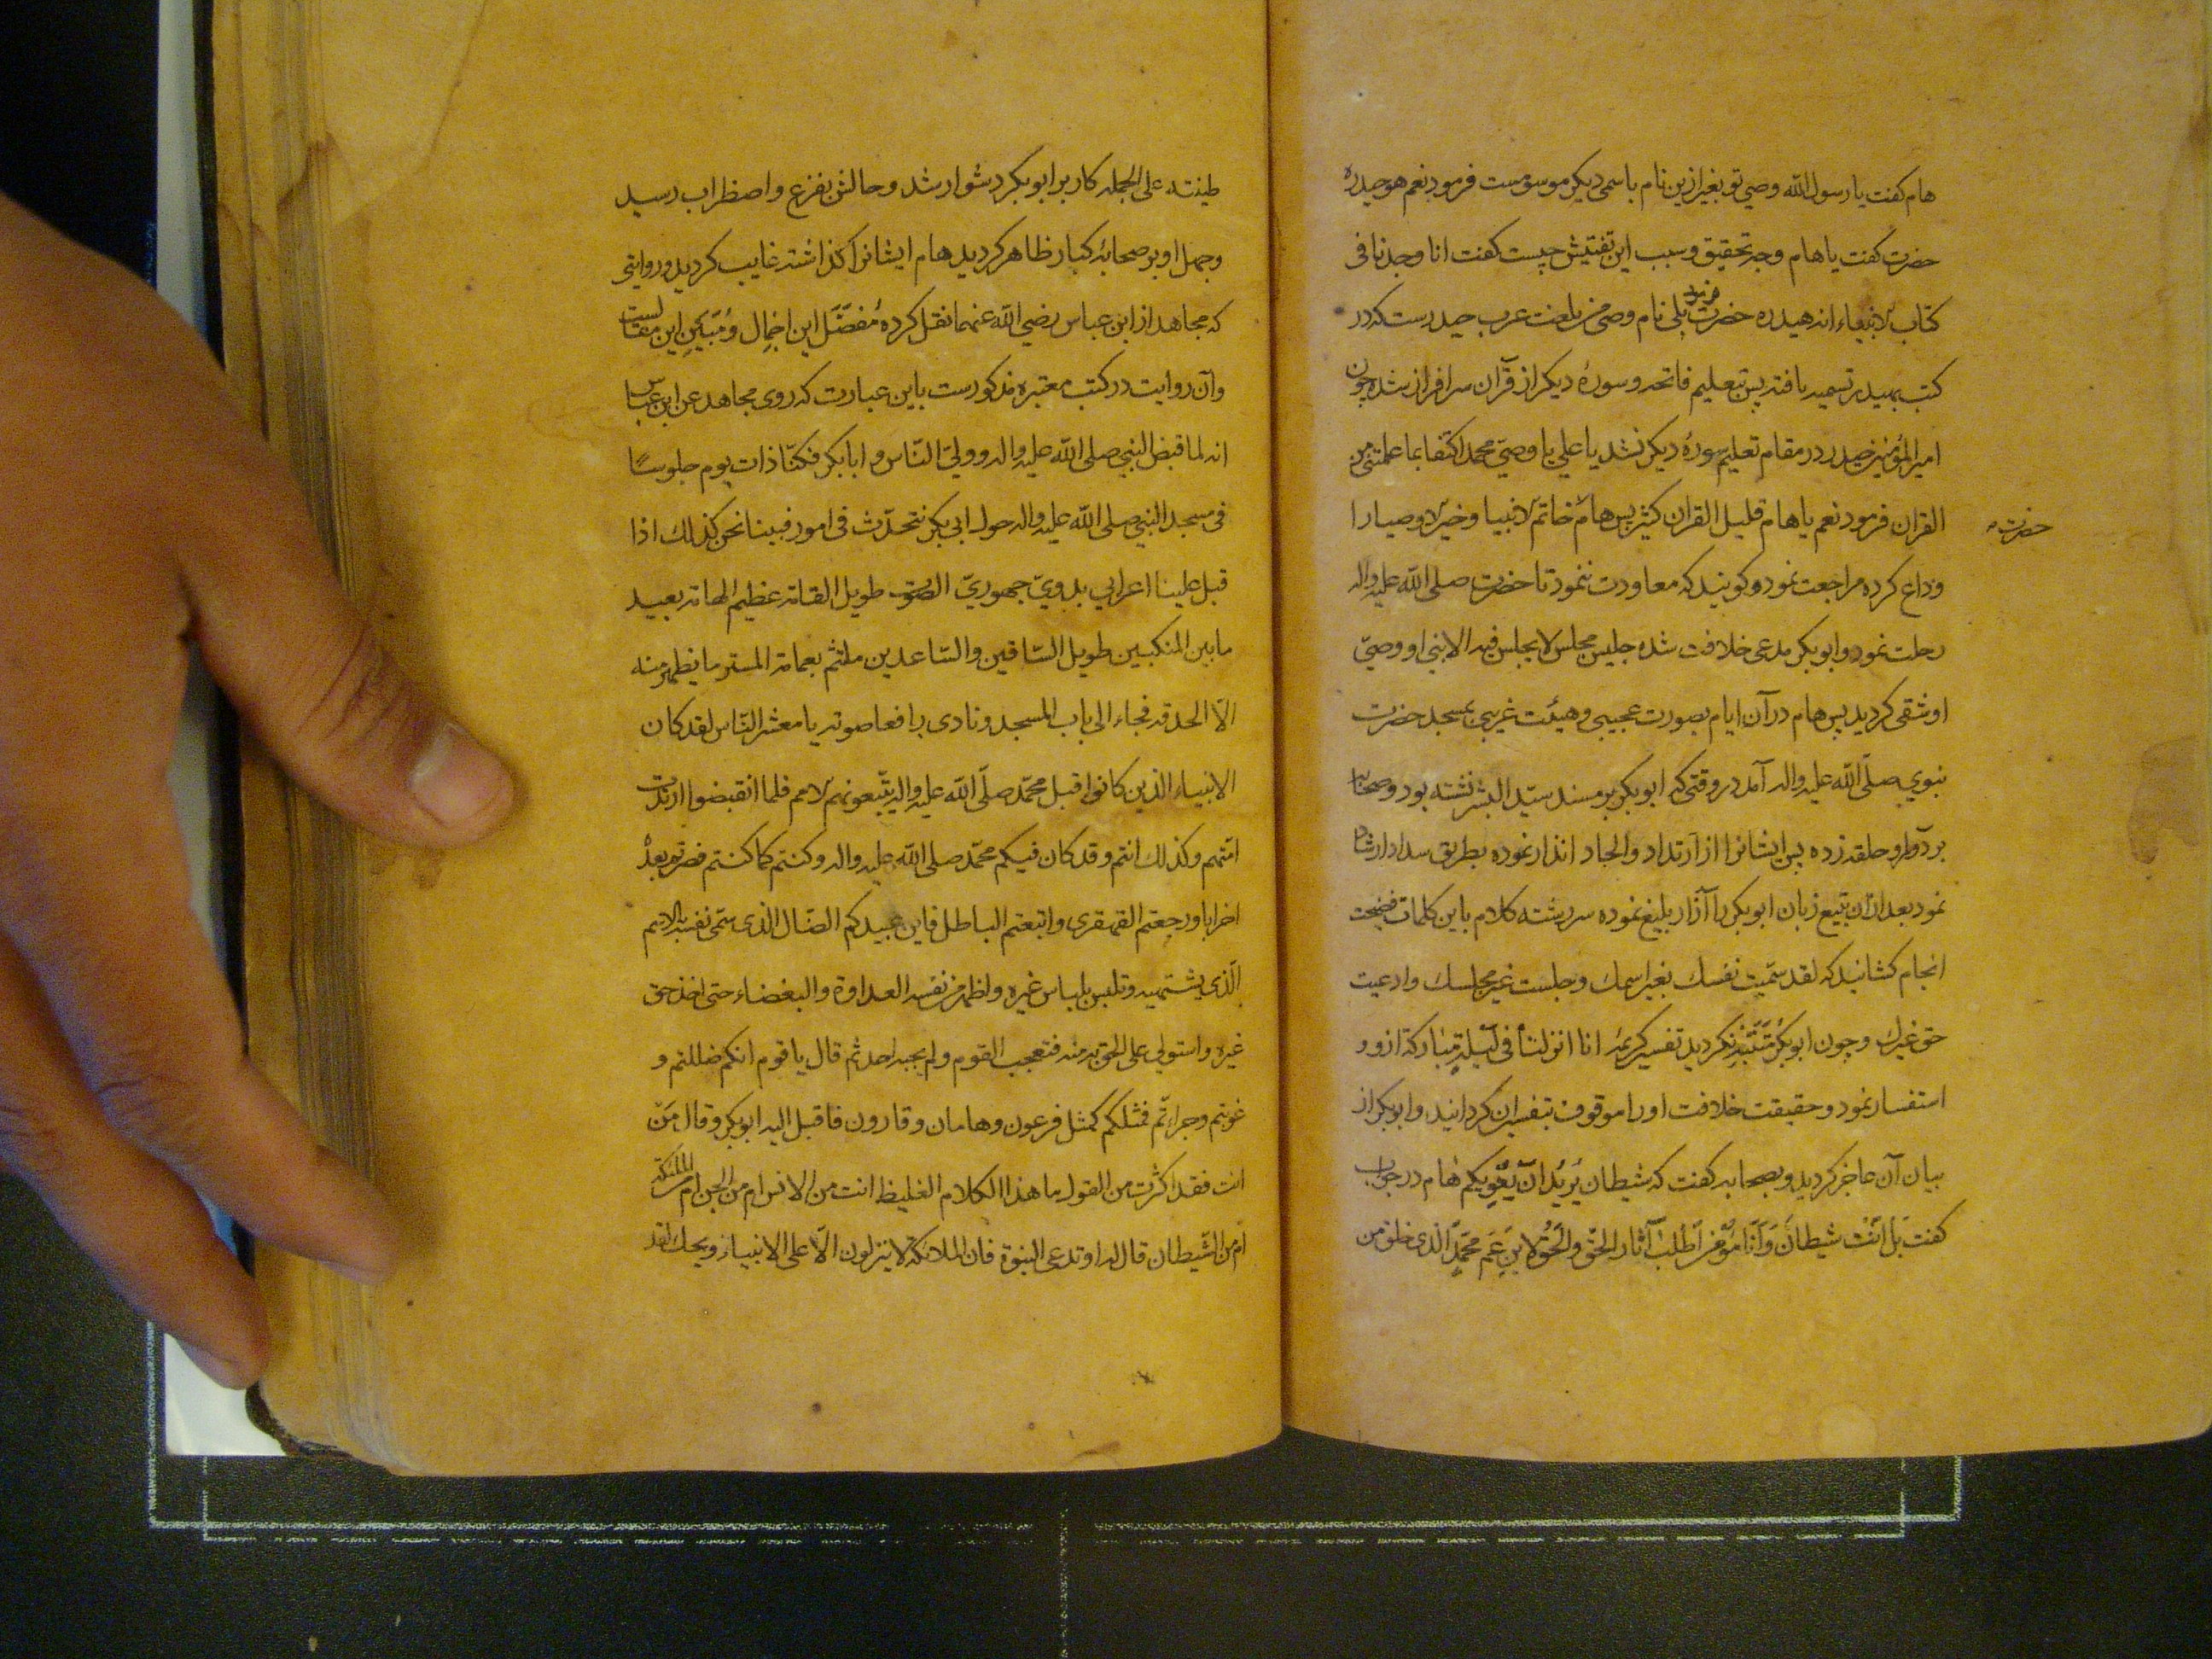 هام کفت یا رسول الله وصی تو بغیر ازین نام باسمی دیکر موسومست فرمود نعم هو حیدره
حضرت کفت یا هام وجه تحقیق و سبب این تفتیش چیست کفت انا وجدنا فی
کتاب الانبیاء انه هیدره حضرت فرمود بلی نام وصی من بلغت عرب حیدرست که در
کتب بهیدره تسمیه یافته پس بتعلیم فاتحه و سورهٔ دیکر از قرآن سرافراز شده چون
امیر المؤمنین حیدر در مقام تعلیم سورهٔ دیکر نشد یا علی یا وصی محمد اکتفا بما علمتنی من
القران فرمود نعم یا هام قلیل القران کثیر پس هام خاتم الانبیا و خیر الاوصیا را
حضرت
وداع کرده مراجعت نمود و کویند که معاودت ننمود تا حضرت صلی الله علیه واله
رحلت نمود و ابو بکر مدعی خلافت شده جلیس مجلس لا یجلس فیه الا نبی او وصی
او شقی کردید پس هام در آن ایام بصورت عجیبی و هیئت غریبی بمسجد حضرت
نبوی صلی الله علیه واله آمد در وقتی که ابو بکر بر مسند سید البشر نشسته بود و صحابا
بر دور او حلقه زده پس ایشانرا از ارتداد و الحاد انذار نموده بطریق سداد ارشاد
نمود بعد از آن بتیغ زبان ابو بکر را آزار بلیغ نموده سررشته کلام باین کلمات فضیحت
انجام کشانید که لقد سمیت نفسک بغیر اسمک و جلست غیر مجلسک و ادعیت
حق غیرک و چون ابو بکر کردید تفسیر کریمهٔ انا انزلناه فی لیلة مبارکة ازو
استفسار نمود و حقیقت خلافت او را موقوف بتفسیر آن کردانید و ابو بکر از
بیان آن عاجز کردید و بصحابه کفت که شیطان یرید ان یغویکم هام در جواب
کفت بل انت شیطان و انا مؤمن اطلب آثار الحق و الحق لابن عم محمد الذی خلق من
طینته علی الجمله کار بر ابو بکر دشوار شد و حالش بفزع و اضطراب رسید
و جهل او بر صحابهٔ کبار ظاهر کردید هام ایشانرا کذاشته غایب کردید و روایتی
که مجاهد از ابن عباس رضی الله عنهما نقل کرده مفصّل این اجمال و مُبَیّن این مقالست
و آن روایت در کتب معتبره مذکورست باین عبارت که روی مجاهد عن ابن عباس
انه لما قبض النبی صلی الله علیه واله و ولی الناس ابا بکر فکنا ذات یوم جلوسًا
فی مسجد النبی صلی الله علیه واله حول ابی بکر نتحدّث فی امور فبینا نحن کذلک اذا
قبل علینا اعرابی بدوی جهوری الصوت طویل القامة عظیم الهامة بعید
ما بین المنکبین طویل الساقین والساعدین ملتثم بعمامة المستر ما یظهر منه
الّا الحدقه فجاء الی باب المسجد و نادی رافعا صوته یا معشر الناس لقد کان
الانبیاء الذین کانوا قبل محمّد صلّی الله علیه واله یتّبعونهم الامم فلما انقبضوا ارتدت
امّتهم وکذلک انتم و قد کان فیکم محمّد صلی الله علیه واله وکنتم کما کنتم فصرتم بعدُ
احزابا و رجعتم القهقری و اتبعتم الباطل فاین عبیدکم الضّال الذی سمّی نفسه بالاسم
الّذی یشتهیه و تلبس بلباس غیره و اظهر من نفسه العداوة والبغضاء حتی اخذ حق
غیره و استولی علی الحق بتر منه فتعجب القوم ولم یجبه احد ثم قال یا قوم انکم ضللتم و
غویتم و جراءتم فمثلکم کمثل فرعون و هامان و قارون فاقبل الیه ابو بکر و قال مَن
انت فقد اکثرت من القول ما هذا الکلام الغلیظ انت من الانس ام من الجن ام الملئکة
ام من الشّیطان قال له او تدعی النبوة فان الملائکة لا ینزلون الّا علی الانبیاء ویحک لقد